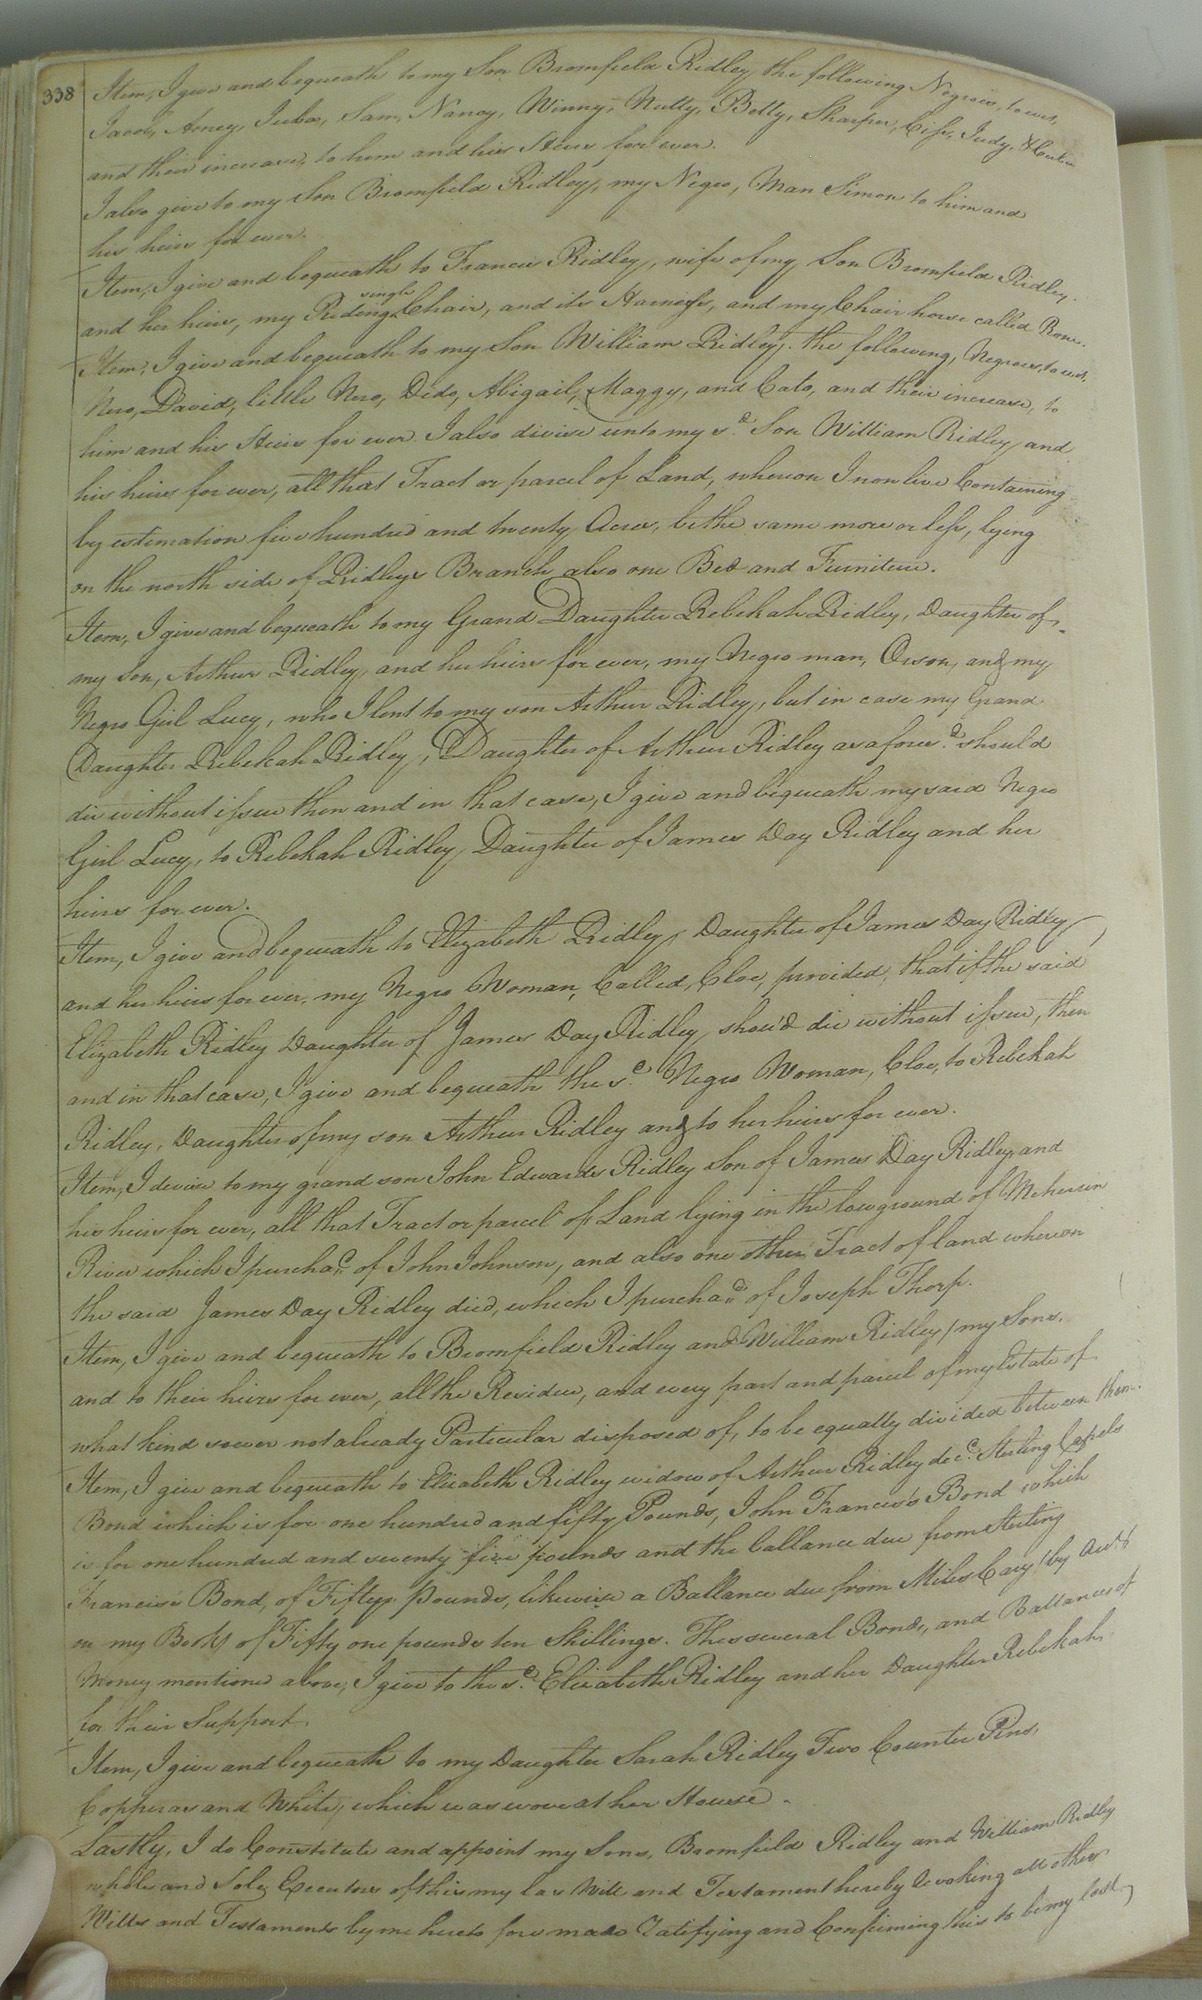 338
Item, I give and bequeath to my Son Bromfield Ridley the following Negroes, to wit,
Jacob, Amey, Juba, Sam, Nancy, Winny, Nutty, Betty, Sharper, Judy, &
and their increase, to him and his Heirs for ever.
I also give to my Son Bromfield Ridley, my Negro, Man Simon to him and
his heirs for ever.
Item, I give and bequeath to Francis Ridley, wife of my Son Bromfield Ridley,
and her heirs, my Riding single Chair, and its Harness, and my Chair horse called
Item, I give and bequeath to my Son William Ridley, the following, Negroes, to wit,
Nero, David, little Nero, Dido, Abigail, Maggy, and Cato, and their increase, to
him and his Heirs for ever. I also divise unto my sd. Son William Ridley, and
his heirs for ever, all that Tract or parcel of Land, whereon I now live Containing
by estimation five hundred and twenty Acres, be the same more or less, lying
on the north side of Ridleys Branch also one Bed and Furniture.
Item, I give and bequeath to my Grand Daughter Rebekah Ridley, Daughter of
my son, Arthur Ridley, and her heirs for ever, my Negro man, Orson, and my
Negro Girl Lucy, who I lent to my son Arthur Ridley, but in case my Grand
Daughter Rebekah Ridley, Daughter of Arthur Ridley as afores.d should
die without issue then and in that case, I give and bequeath my said Negro
Girl Lucy, to Rebekah Ridley, Daughter of James Day Ridley and her
heirs for ever.
Item, I give and bequeath to Elizabeth Ridley, Daughter of James Day Ridley,
and her heirs for ever, my Negro Woman, Called, Cloe, provided, that if the said
Elizabeth Ridley Daughter of James Day Ridley, shou'd die without issue, then
and in that case, I give and bequeath the sd. Negro Woman, Cloe, to Rebekah
Ridley, Daughter of my son Arthur Ridley and to her heirs for ever.
Item, I devise to my grand son John Edwards Ridley Son of James Day Ridley, and
his heirs for ever, all that Tract or parcel of Land lying in the low ground of Meherrin
River which I purchasd of John Johnson, and also one other Tract of land whereon
the said James Day Ridley died, which I purchasd of Joseph Thorp.
Item, I give and bequeath to Bromfield Ridley and William Ridley, my Sons,
and to their heirs for ever, all the Residue, and every part and parcel of my Estate of
what kind soever not already Particular disposed of, to be equally divided between them.
Item, I give and bequeath to Elizabeth Ridley widow of Arthur Ridley decd. Sterling Capels
Bond which is for one hundred and fifty Pounds, John Francis's Bond which
is for one hundred and seventy five pounds and the ballance due from Sterling
Francis's Bond, of Fifty Pounds, likewise a Ballance due from Miles Cary, by
on my Books of Fifty one pounds ten Shillings. The several Bonds, and Ballances of
Money mentioned above, I give to the sd. Elizabeth Ridley and her Daughter Rebekah
for their Support.
Item, I give and bequeath to my Daughter Sarah Ridley Two Counter Pins,
Copperas and White, which was wove at her House.
Lastly, I do Constitute and appoint my Sons, Bromfield Ridley and William Ridley
whole and Sole Executors of this my las Will and Testament hereby Revoking all other
Wills and Testaments by me hereto fore made Ratifying and Confirming this to be my last